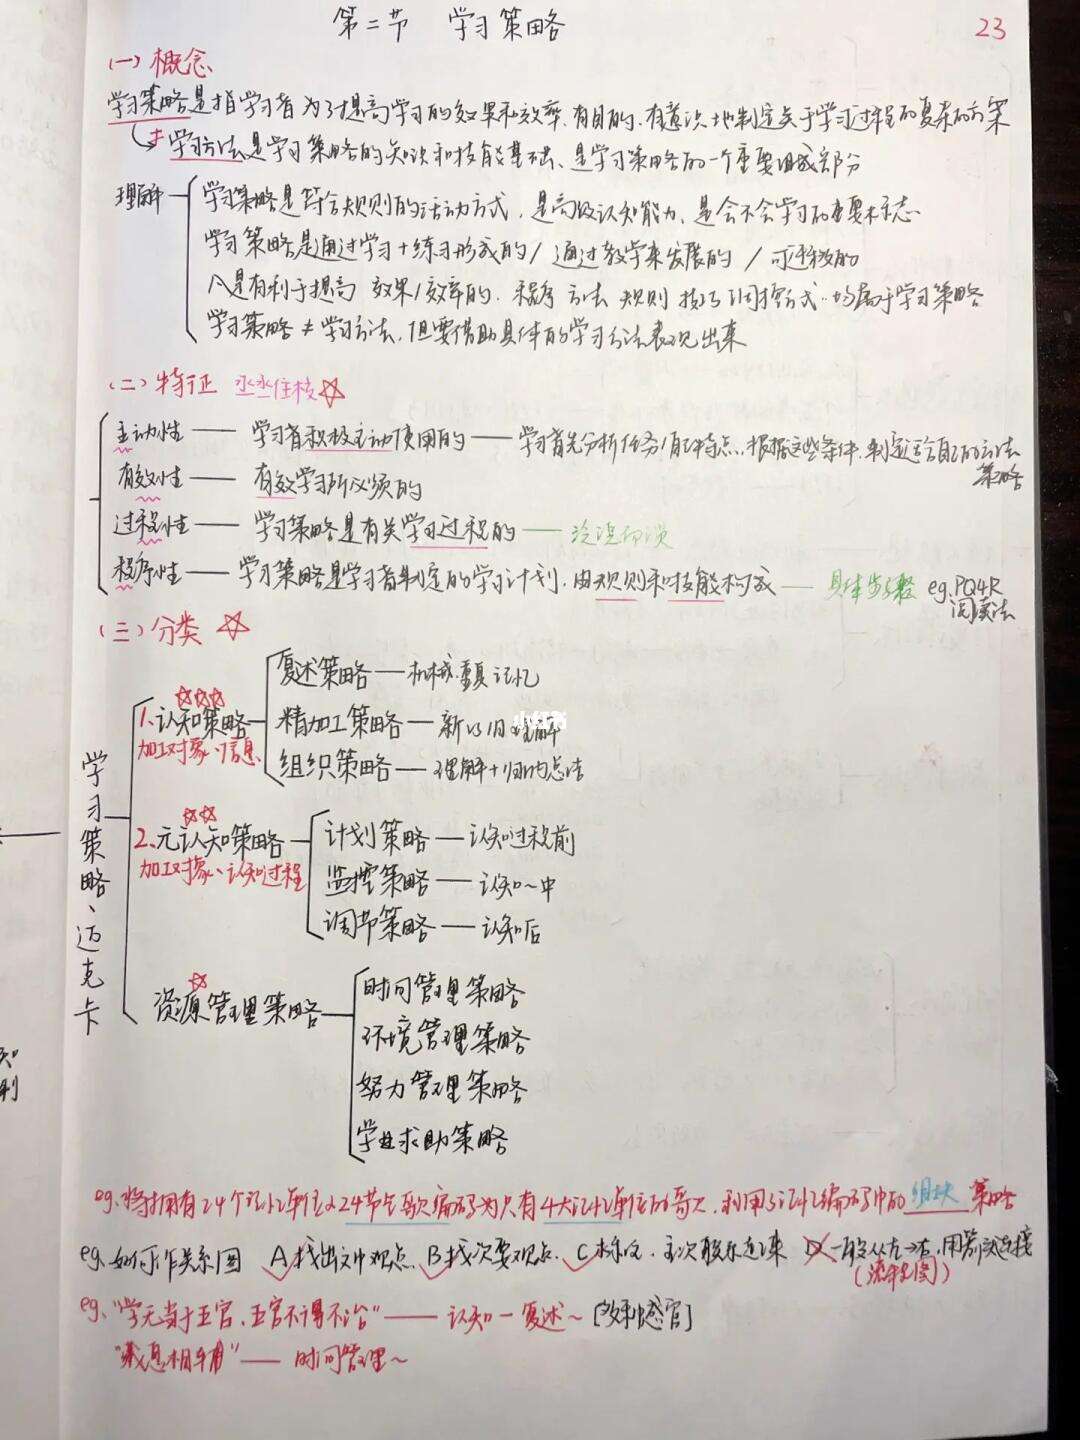 第二节 学习策略
23
(一) 概念
学习策略是指学习者为了提高学习的效果和效率、有目的、有意识地制定关于学习过程的复杂的方案
学习方法是学习策略的知识和技能基础、是学习策略的一个重要组成部分
理解
学习策略是符合规则的活动方式，是高级认知能力、是会不会学习的重要标志
学习策略是通过学习+练习形成的/通过教学来发展的/可迁移的
凡是有利于提高 效果/效率的、程序 方法 规则 技巧 调控方式、均属于学习策略
学习策略≠学习方法，但要借助具体的学习方法表现出来
(二) 特征
主动性 —— 学习者积极主动使用的 —— 学习者先分析任务/自己特点、根据这些条件、制定适合自己的方法
策略
有效性 —— 有效学习所必须的
过程性 —— 学习策略是有关学习过程的
程序性 —— 学习策略是学习者制定的学习计划，由规则和技能构成 —— 具体步骤 eg.PQ4R
阅读法
(三) 分类
学习策略、迈克卡
1、认知策略
加工对象、信息
复述策略 —— 机械重复记忆
精加工策略 —— 新
小红书
组织策略 —— 理解+归纳总结
2、元认知策略
加工对象、认知过程
计划策略 —— 认知过程前
监控策略 —— 认知~中
调节策略 —— 认知后
资源管理策略
时间管理策略
环境管理策略
努力管理策略
学业求助策略
知
利
eg、将拥有24个记忆单位的24节气歌编码为只有4大记忆单位的 利用了记忆编码中的组块策略
eg、如何作关系图 A找出文中观点 B找次要观点 C 主次联系连起来 D 一般从左→右，用箭头连接
(流程图)
eg、“学无当于五官、五官不得不治” —— 认知-复述~ [多种感官]
“藏息相辅” —— 时间管理~